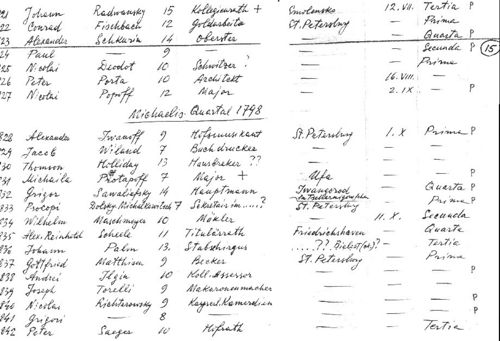 821 Johann Radwansky 15 Kollegienrath + Smolensko 12. VII. Tertia P
822 Conrad Fischbach 12 Goldarbeita St. Petersburg — Prima
823 Alexander Schkurin 14 Oberster — — Quarta P
824 Paul — 9 — — — Secunda P 15
825 Nicolai Deodot 10 Schwitzer ? — — Prima
826 Peter Porta 10 Architekt — 16. VIII. —
827 Nicolai Popoff 12 Major — 2. IX. — P
Michaelis Quartal 1798
828 Alexander Iwanoff 9 Hofmusikant St. Petersburg 1. X Prima P
829 Jacob Wiland 7 Buchdrucker — — —
830 Thomson Holliday 13 Hausbraker ?? — — —
831 Michaila Protapoff 7 Major + Ufa — — P
832 Grigor Sawaliefsky 14 Hauptmann Iwangorod — Quarta P
833 Procopi Dolsky Michalkewitsch 7 Sekretair im.....? St. Petersburg — Prima P
834 Wilhelm Maschmeyer 10 Mäkler — 11. X. Secunda
835 Alex. Reinhold Scheele 11 Titulärrath Friedrichshaven — Quarta
836 Johann Palm 13. Stabschirurgus .....?? — Tertia
837 Gottfried Matthisen 9 Becker St. Petersburg — Prima
838 Andrei Ilgin 10 Koll. Assessor — — — P
839 Joseph Torelli 9 Makaronenmacher — — —
840 Nicolas Richterowsky 9 Kayserl. Kamerdien — — — P
841 Grigori — 8 — — — P
842 Peter Saeger 10 Hofrath — — Tertia